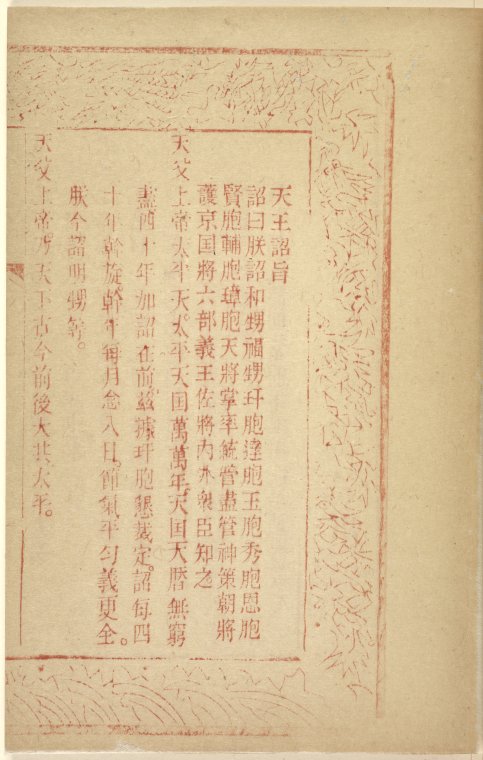 天王詔旨
詔曰朕詔和甥福甥玕胞達胞玉胞秀胞恩胞
賢胞輔胞璋胞天將掌率統管盡管神策朝將
護京国將六部義王佐將內外衆臣知之
天父上帝太平天太平天国萬萬年天国天曆無窮
盡四十年加詔在前茲據玕胞懇裁定詔每四
十年斡旋斡年每月念八日節氣平勻義更全。
朕今詔明甥等。
天父上帝乃天下古今前後大共太平。